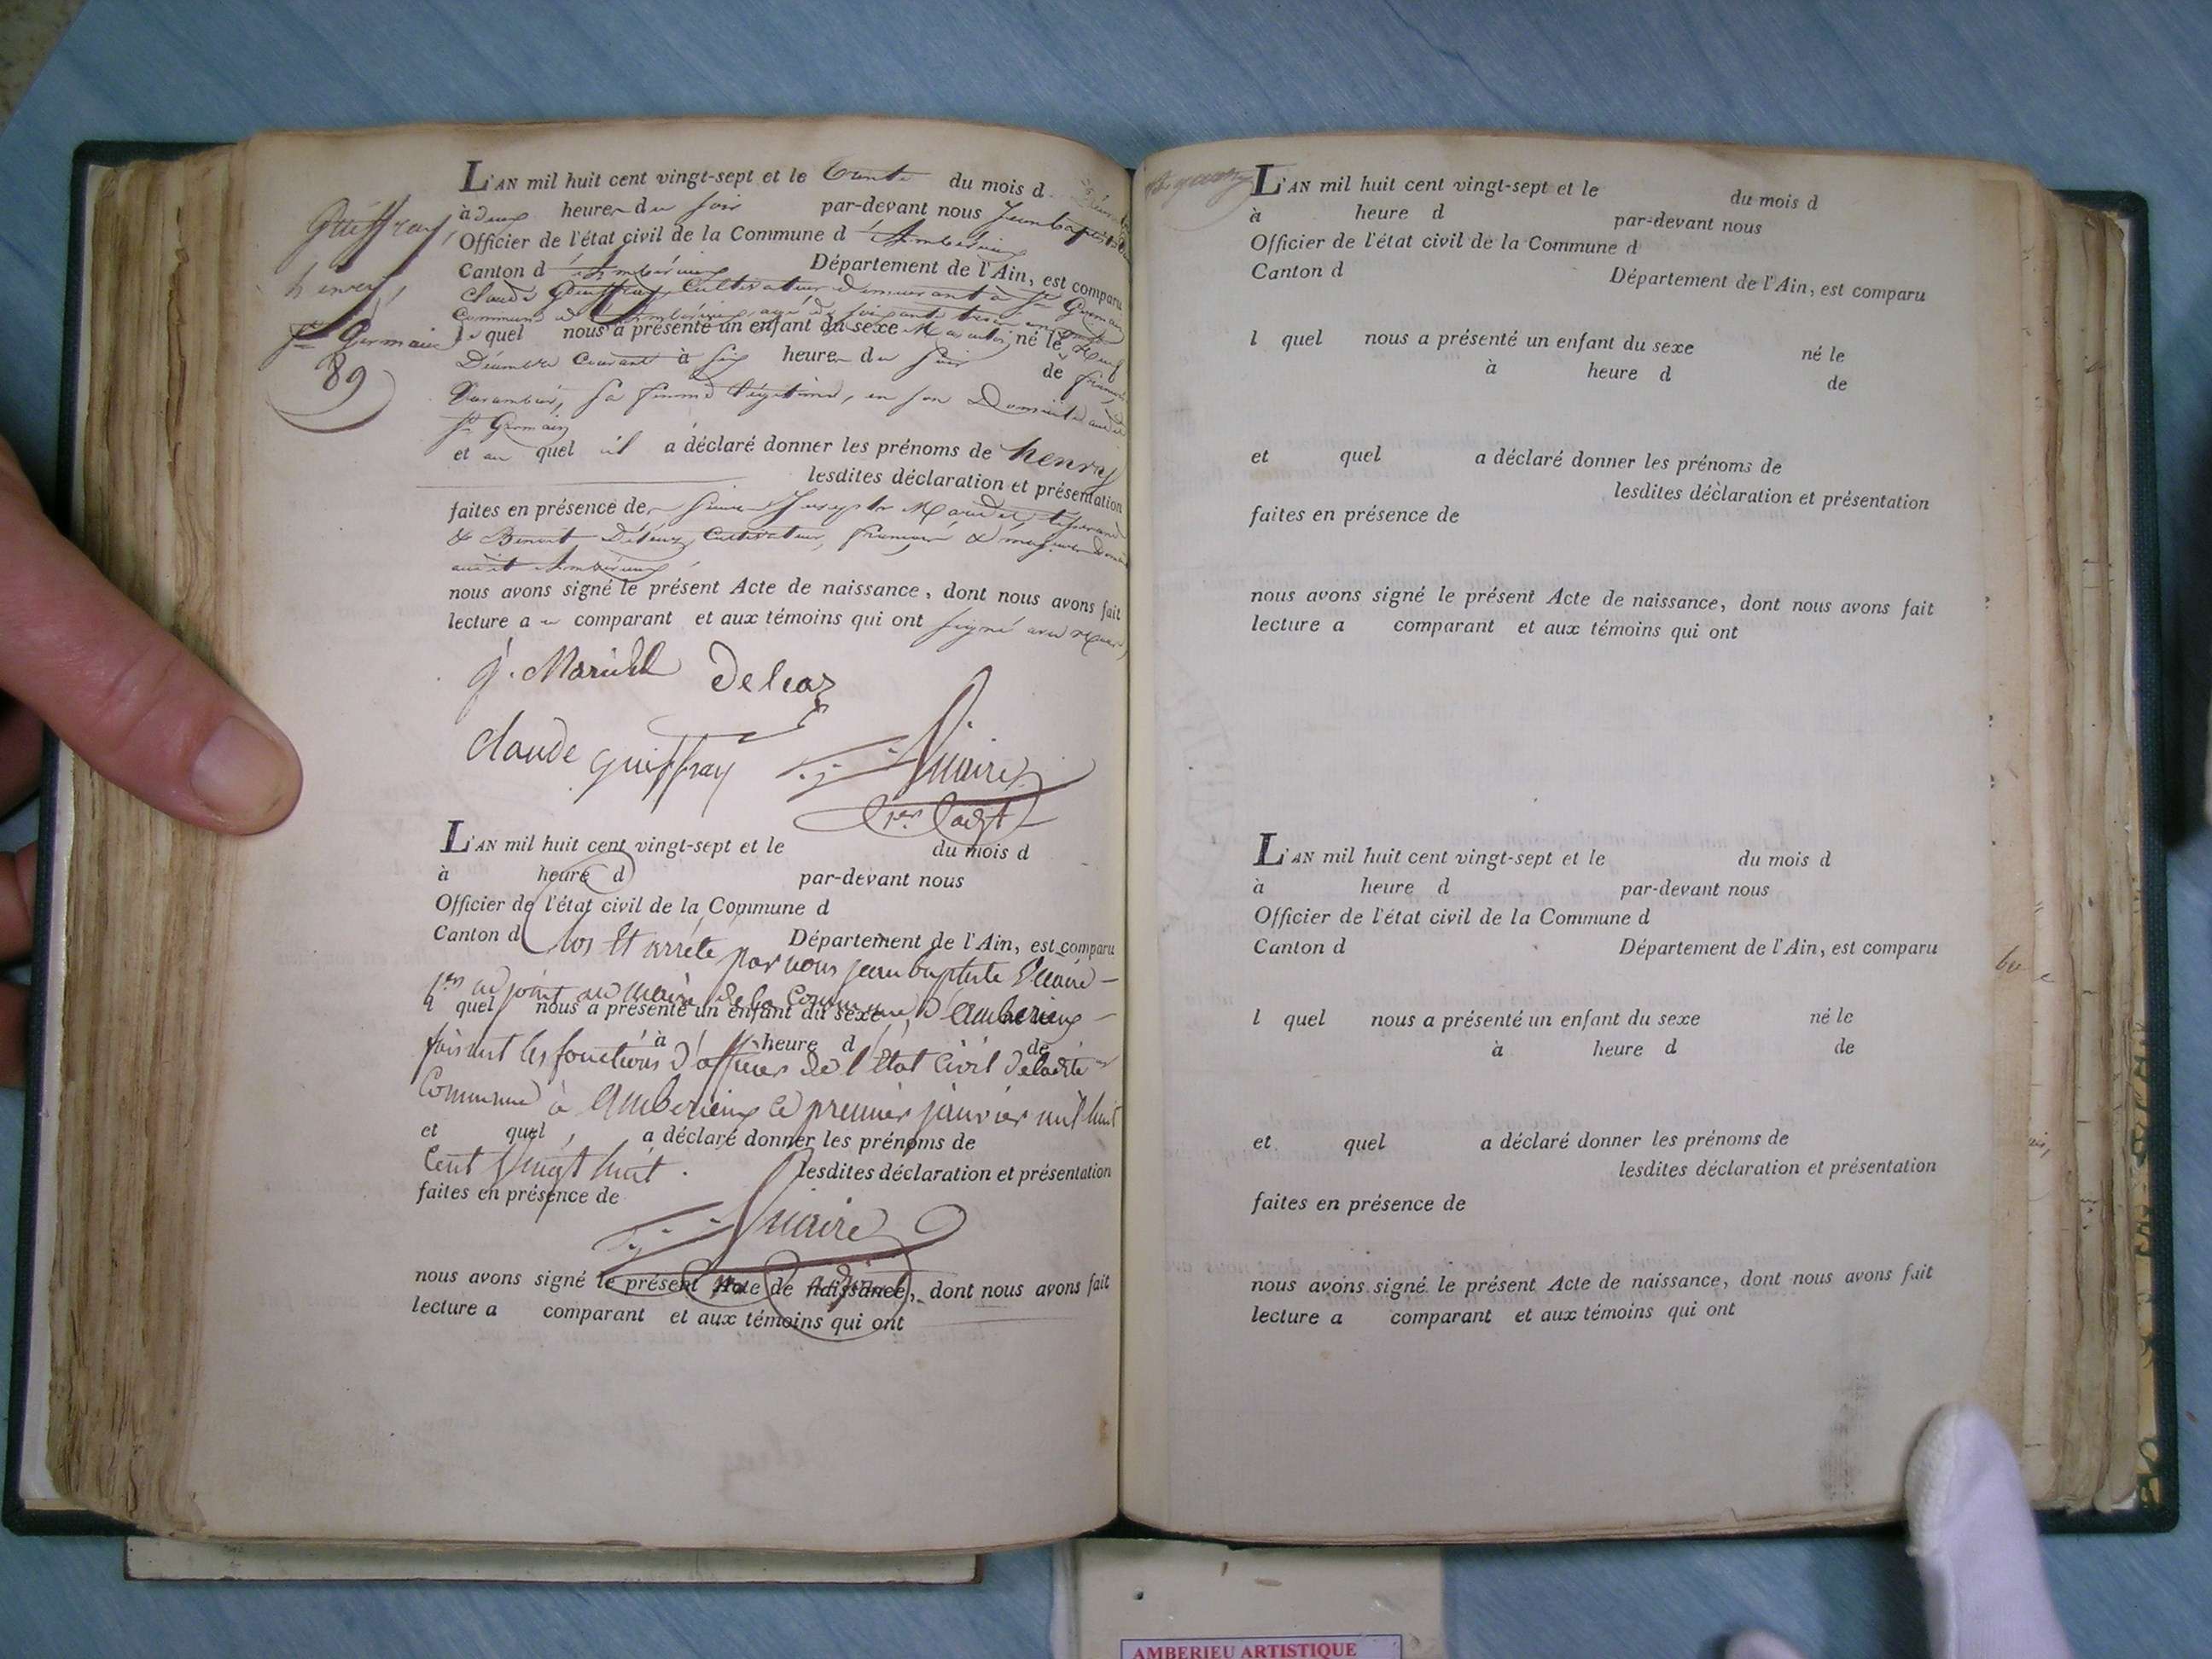 Guiffray,
henry,
St Germain
89
L'AN mil huit cent vingt-sept et le trente du mois d
à deux heures du soir par-devant nous Jean baptiste
Officier de l'état civil de la Commune d'Ambérieux
Canton d'Ambérieux Département de l'Ain, est comparu
Claude Guiffray, Cultivateur demeurant à St Germain
Commune d'Ambérieux, âgé de soixante trois ans
lequel nous a présenté un enfant du sexe Masculin, né le
Décembre Courant à six heures du soir de
sa femme légitime, en son Domicile audit
St Germain
et auquel il a déclaré donner les prénoms de henry
lesdites déclaration et présentation
faites en présence de Joseph tisserand
& Benoit Cultivateur,
audit Ambérieux
nous avons signé le présent Acte de naissance, dont nous avons fait
lecture au comparant et aux témoins qui ont signé avec Nous
Deleaz
Claude guiffray
1er adjt
L'AN mil huit cent vingt-sept et le du mois d
à heure d par-devant nous
Officier de l'état civil de la Commune d
Canton d Département de l'Ain, est comparu
Clos Et arrêté par nous jean baptiste
1er adjoint au maire de la Commune d'amberieux
l quel nous a présenté un enfant du sexe né le
à heure d de
faisant les fonctions d'officier de l'état Civil de ladite
Commune à amberieux le premier janvier mil huit
et quel a déclaré donner les prénoms de
Cent vingt huit.
lesdites déclaration et présentation
faites en présence de
nous avons signé le présent Acte de naissance, dont nous avons fait
lecture a comparant et aux témoins qui ont
L'AN mil huit cent vingt-sept et le du mois d
à heure d par-devant nous
Officier de l'état civil de la Commune d
Canton d Département de l'Ain, est comparu
l quel nous a présenté un enfant du sexe né le
à heure d de
et quel a déclaré donner les prénoms de
lesdites déclaration et présentation
faites en présence de
nous avons signé le présent Acte de naissance, dont nous avons fait
lecture a comparant et aux témoins qui ont
L'AN mil huit cent vingt-sept et le du mois d
à heure d par-devant nous
Officier de l'état civil de la Commune d
Canton d Département de l'Ain, est comparu
l quel nous a présenté un enfant du sexe né le
à heure d de
et quel a déclaré donner les prénoms de
lesdites déclaration et présentation
faites en présence de
nous avons signé le présent Acte de naissance, dont nous avons fait
lecture a comparant et aux témoins qui ont
AMBERIEU ARTISTIQUE